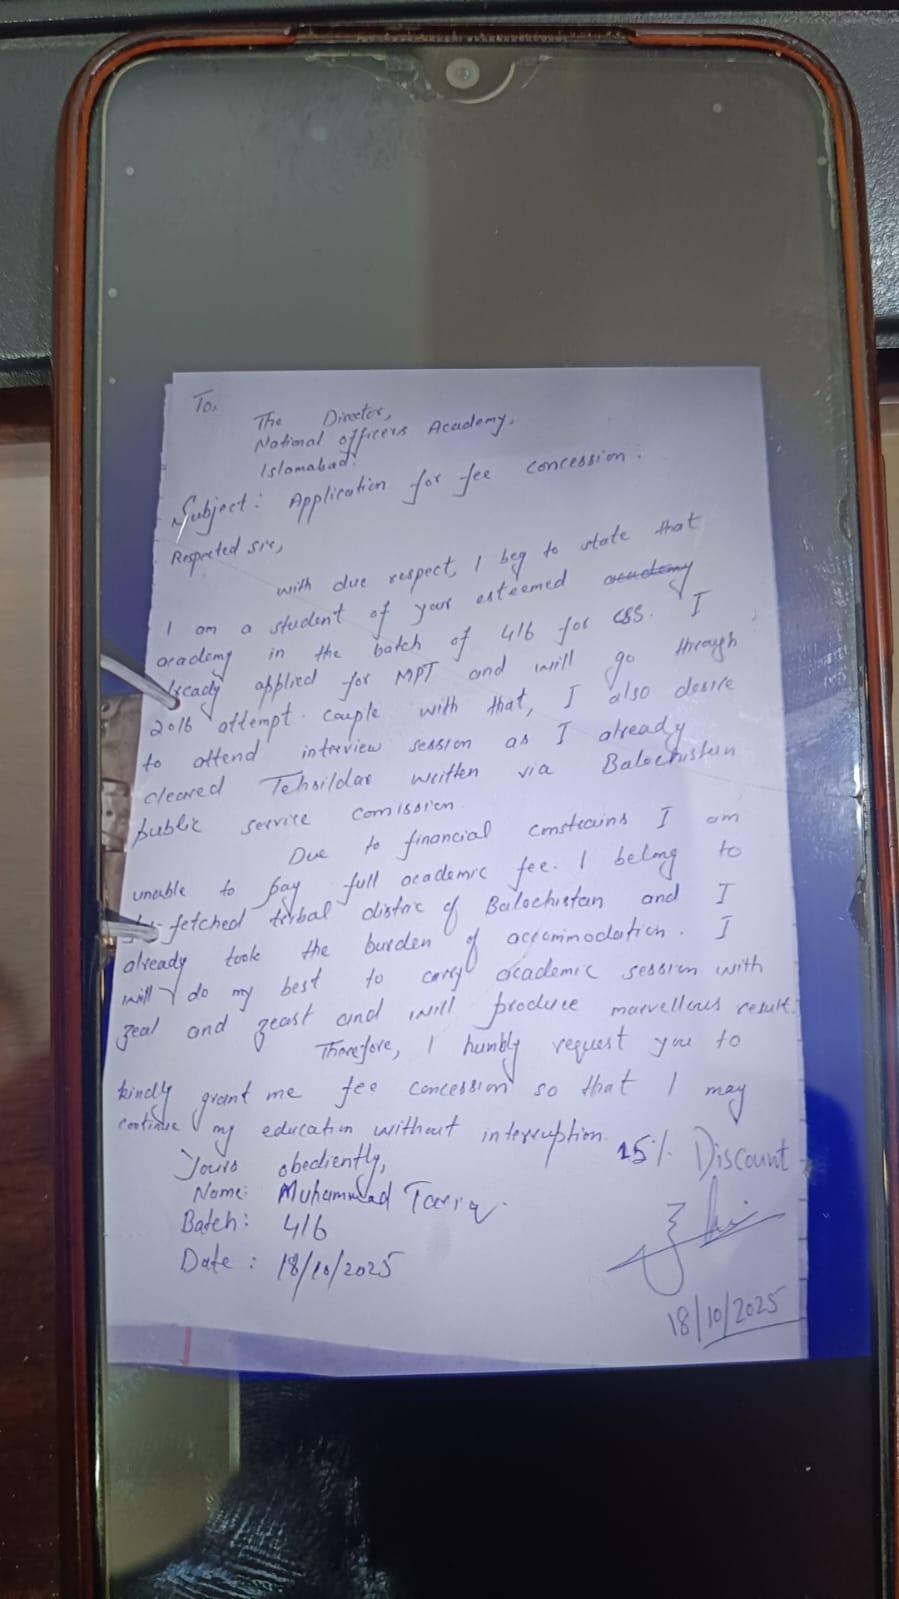 To,
The Director,
National officers Academy.
Islamabad.
Subject: Application for fee concession.
Respected sir,
with due respect, I beg to state that
I am a student of your esteemed academy
academy in the batch of 416 for CSS. I
already applied for MPT and will go through
2016 attempt. Couple with that, I also desire
to attend interview session as I already
cleared Tehsildar written via Balochistan
public service Comission.
Due to financial constrains I am
unable to pay full academic fee. I belong to
fetched tribal distric of Balochistan and I
already took the burden of accommodation. I
will do my best to carry academic session with
zeal and zeast and will produce marvellous result.
Therefore, I humbly request you to
kindly grant me fee concession so that I may
continue my education without interruption.
Yours obediently,
Name: Muhammad Tariq.
Batch: 416
Date: 18/10/2025
15% Discount
18/10/2025